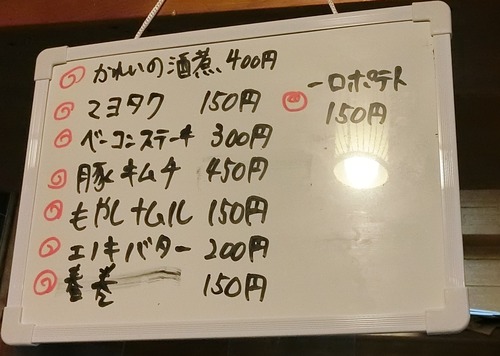 かれいの酒煮 400円
マヨタク 150円
ベーコンステーキ 300円
豚キムチ 450円
もやしナムル 150円
エノキバター 200円
150円
一口ポテト
150円